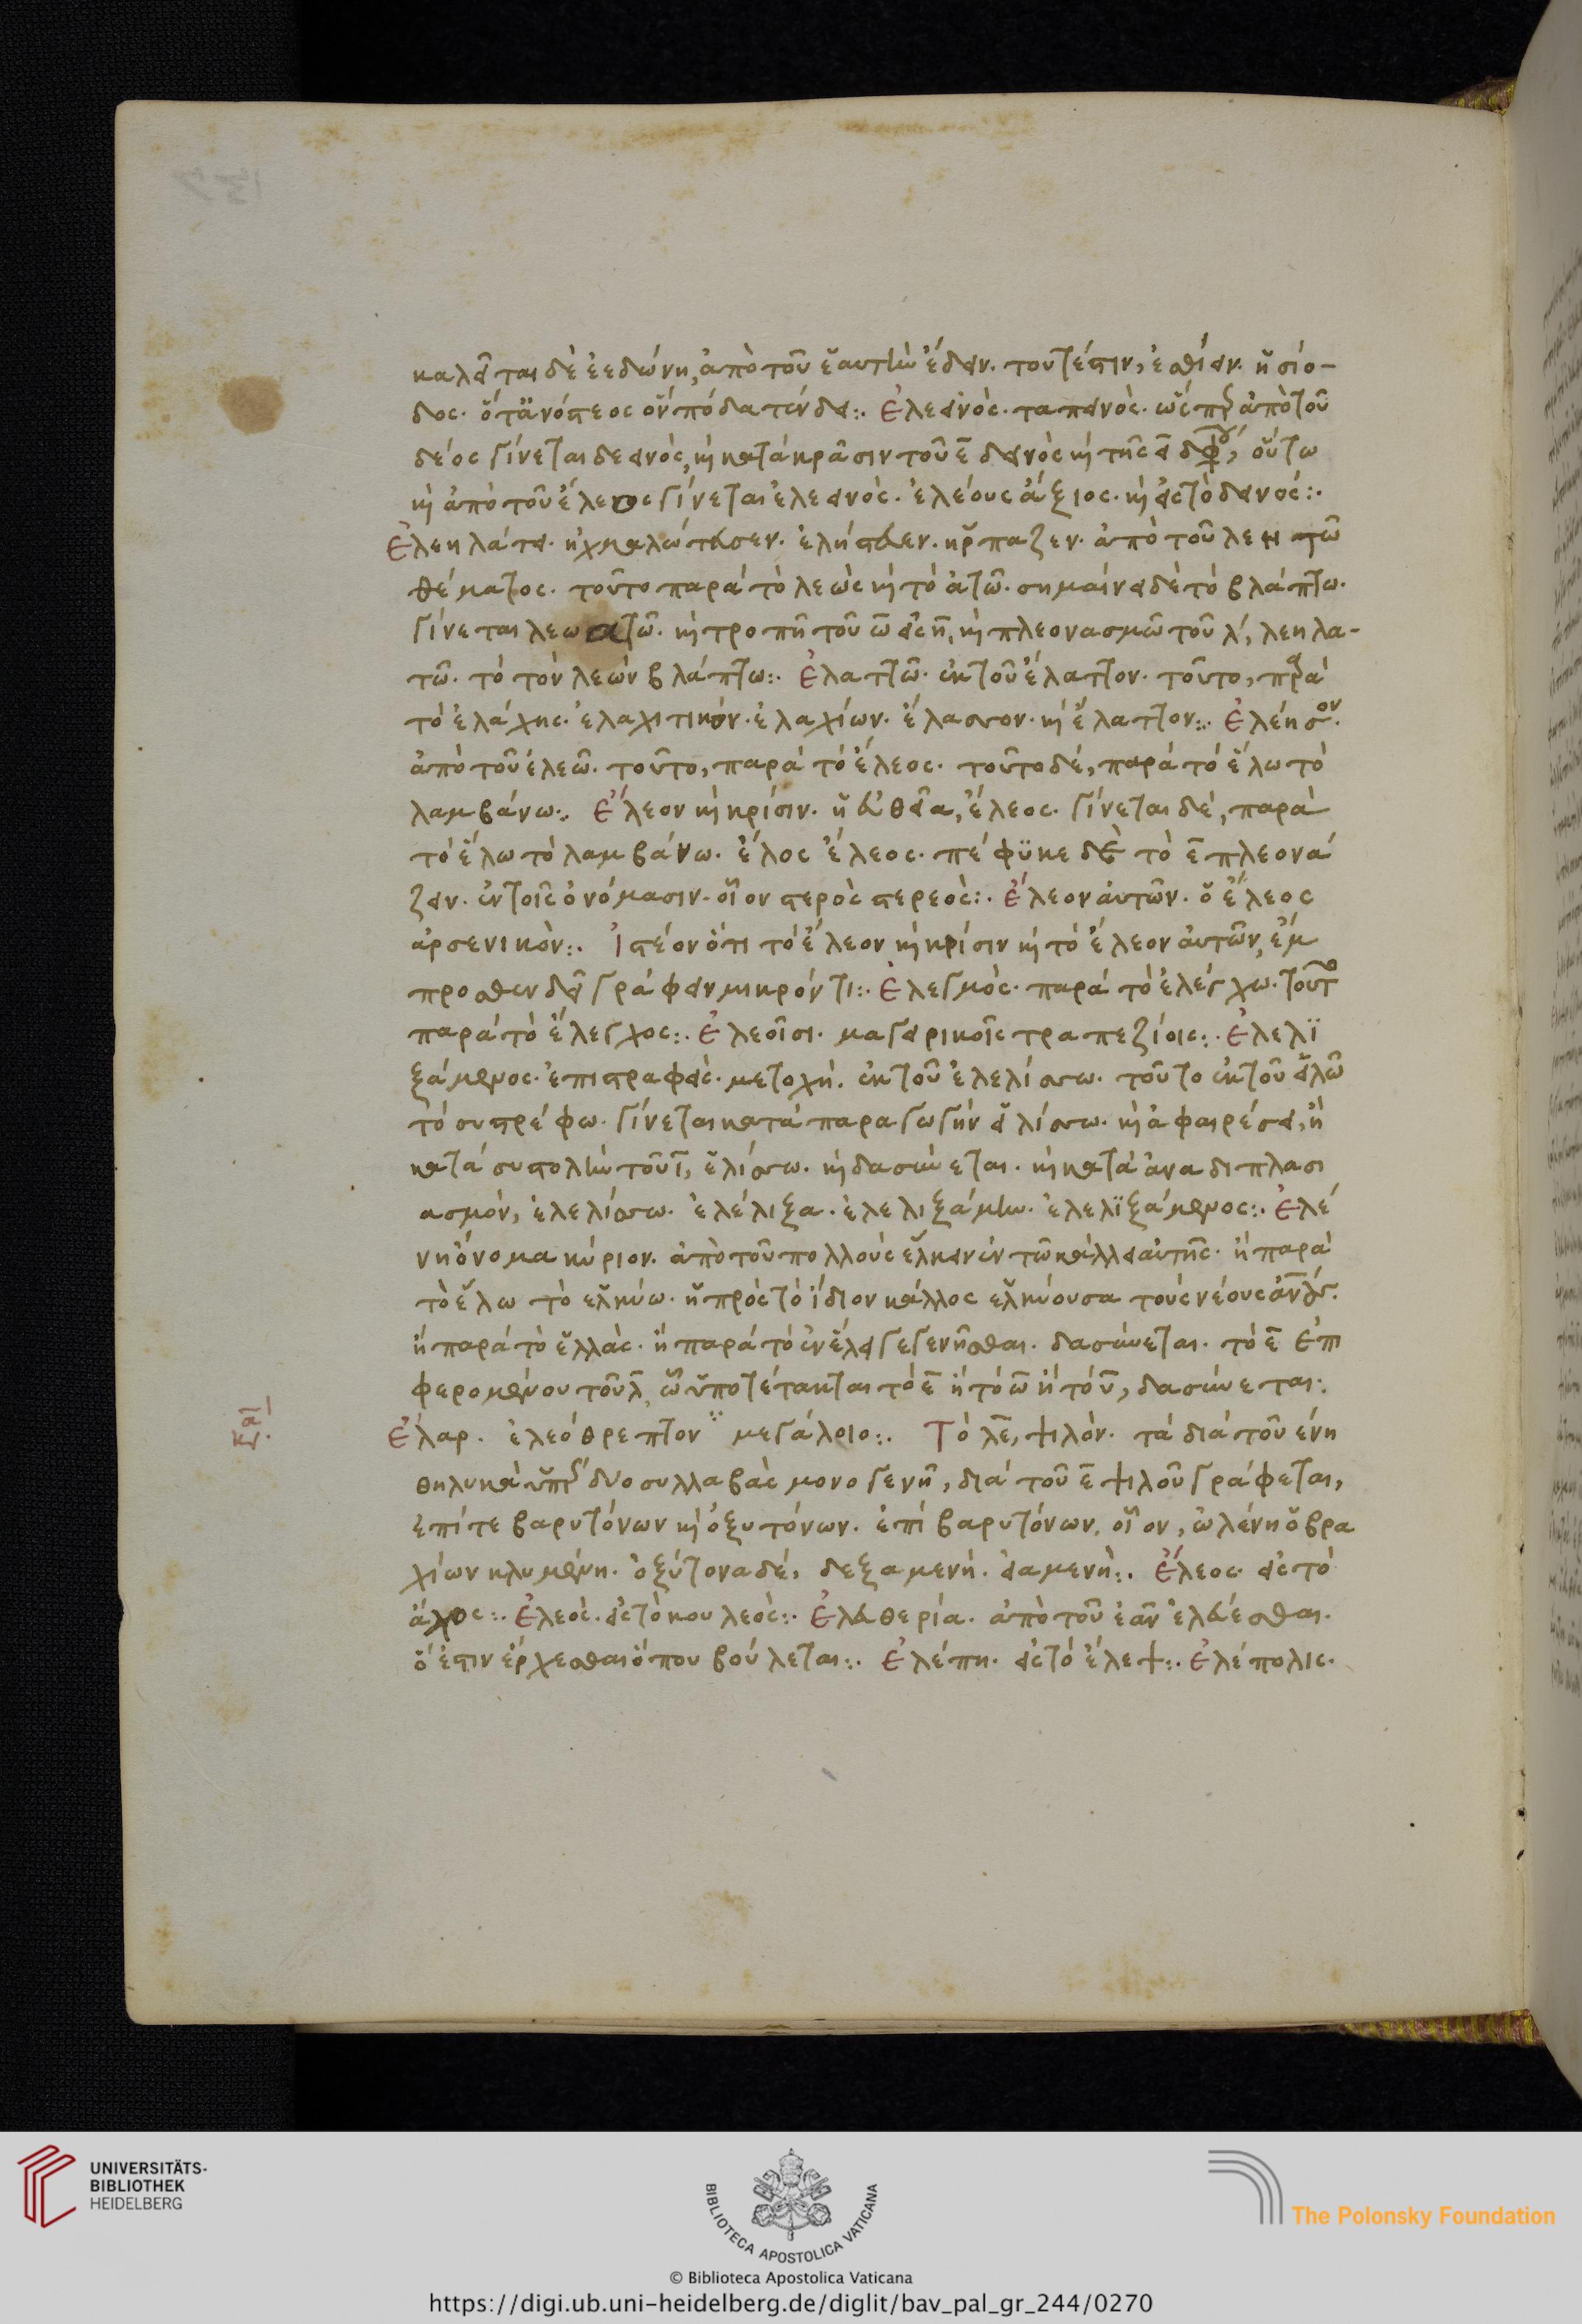 καλεῖται δὲ ἐεδώνη, ἀπὸ τοῦ ἑαυτὴν ἔδειν. τουτέστιν, ἐσθίειν. ἡσίο-
δος. ὅτ' ἀνόστεος ὃν πόδα τένδει:. Ἐλεεινὸς. ταπεινὸς. ὥσπερ ἀπὸ τοῦ
δέος γίνεται δεεινὸς, καὶ κατὰ κρᾶσιν τοῦ ε̄ δεινὸς καὶ τῆς ει διφθόγγου, οὕτω
καὶ ἀπὸ τοῦ ἔλεος γίνεται ἐλεεινὸς. ἐλέους ἄξιος. καὶ εἰς τὸ δεινός:.
Ἐλεηλάτει. ἠχμαλώτευσεν. ἐλήστευεν. ἥρπαζεν. ἀπὸ τοῦ λεηλατῶ
θέματος. τοῦτο παρὰ τὸ λεὼς καὶ τὸ ἀτῶ. σημαίνει δὲ τὸ βλάπτω.
γίνεται λεωατῶ. καὶ τροπῆ τοῦ ω̄ εἰς η̄, καὶ πλεονασμῶ τοῦ λ, λεηλα-
τῶ. τὸ τὸν λεὼν βλάπτω:. Ἐλαττῶ. ἐκ τοῦ ἔλαττον. τοῦτο, παρὰ
τὸ ἐλάχης. ἐλαχιτικόν. ἐλαχίων. ἔλασσον. καὶ ἔλαττον:. Ἐλέησον.
ἀπὸ τοῦ ἐλεῶ. τοῦτο, παρὰ τὸ ἔλεος. τοῦτο δὲ, παρὰ τὸ ἕλω τὸ
λαμβάνω:. Ἔλεον καὶ κρίσιν. ἡ εὐθεῖα, ἔλεος. γίνεται δὲ, παρὰ
τὸ ἕλω τὸ λαμβάνω. ἔλος ἔλεος. πέφϋκε δὲ τὸ ε̄ πλεονά
ζειν. ἐν τοῖς ὀνόμασιν. οἷον στερὸς στερεὸς:. Ἔλεον ἀυτῶν. ὁ ἔλεος
ἀρσενικὸν:. Ἰστέον ὅτι τὸ ἔλεον καὶ κρίσιν καὶ τὸ ἔλεον ἀυτῶν, ἔμ
προσθεν δεῖ γράφειν μικρόν τι:. Ἐλεγμὸς. παρὰ τὸ ἐλέγχω. τοῦτο
παρὰ τὸ ἔλεγχος:. Ἐλεοῖσι. μαγειρικοῖς τραπεζίοις:. Ἐλελϊ
ξάμενος. ἐπιστραφεὶς. μετοχὴ. ἐκ τοῦ ἐλελίσσω. τοῦτο ἐκ τοῦ εἱλῶ
τὸ συστρέφω. γίνεται κατὰ παραγωγὴν εἱλίσσω. καὶ ἀφαιρέσει, ἢ
κατὰ συστολὴν τοῦ ῑ, ἑλίσσω. καὶ δασύνεται. καὶ κατὰ ἀναδιπλασι
ασμόν, ἐλελίσσω. ἐλέλιξα. ἐλελιξάμην. ἐλελϊξάμενος:. Ἑλέ
νη ὄνομα κύριον. ἀπὸ τοῦ πολλοὺς ἕλκειν ἐν τῶ κάλλει ἀυτῆς. ἢ παρὰ
τὸ ἕλω τὸ ἑλκύω. ἡ πρὸς τὸ ἴδιον κάλλος ἑλκύουσα τοὺς νέους
ἢ παρὰ τὸ ἑλλὰς. ἢ παρὰ τὸ ἐν ἕλει γεγενῆσθαι. δασύνεται. τὸ ε̄ ἐπι
φερομένου τοῦ λ̄, ὧ ὑποτέτακται τὸ ε̄ ἢ τὸ ω̄ ἢ τὸ ῡ, δασύνεται:
Ἐλαρ. ἐλεόθρεπτον μεγάλοιο:. Τὸ λε̄, ψιλὸν. τὰ διὰ τοῦ ένη
θηλυκὰ ὑπὲρ δύο συλλαβὰς μονογενῆ, διὰ τοῦ ε̄ ψιλοῦ γράφεται,
ἐπί τε βαρυτόνων καὶ ὀξυτόνων. ἐπὶ βαρυτόνων, οἷον, ὠλένη ὁ βρα
χίων κλυμένη. ὀξύτονα δὲ, δεξαμενὴ. εἱαμενὴ:. Ἔλεος. εἰς τὸ
Ἐλεὸς. εἰς τὸ κουλεὸς:. Ἐλευθερία. ἀπὸ τοῦ ἐᾶν ἐλεύεσθαι.
ὅ ἐστιν ἔρχεσθαι ὅπου βούλεται:. Ἐλέπη. εἰς τὸ ἔλεψ:. Ἑλέπολις.
UNIVERSITÄTS-
BIBLIOTHEK
HEIDELBERG
BIBLIOTECA APOSTOLICA VATICANA
The Polonsky Foundation
© Biblioteca Apostolica Vaticana
https://digi.ub.uni-heidelberg.de/diglit/bav_pal_gr_244/0270